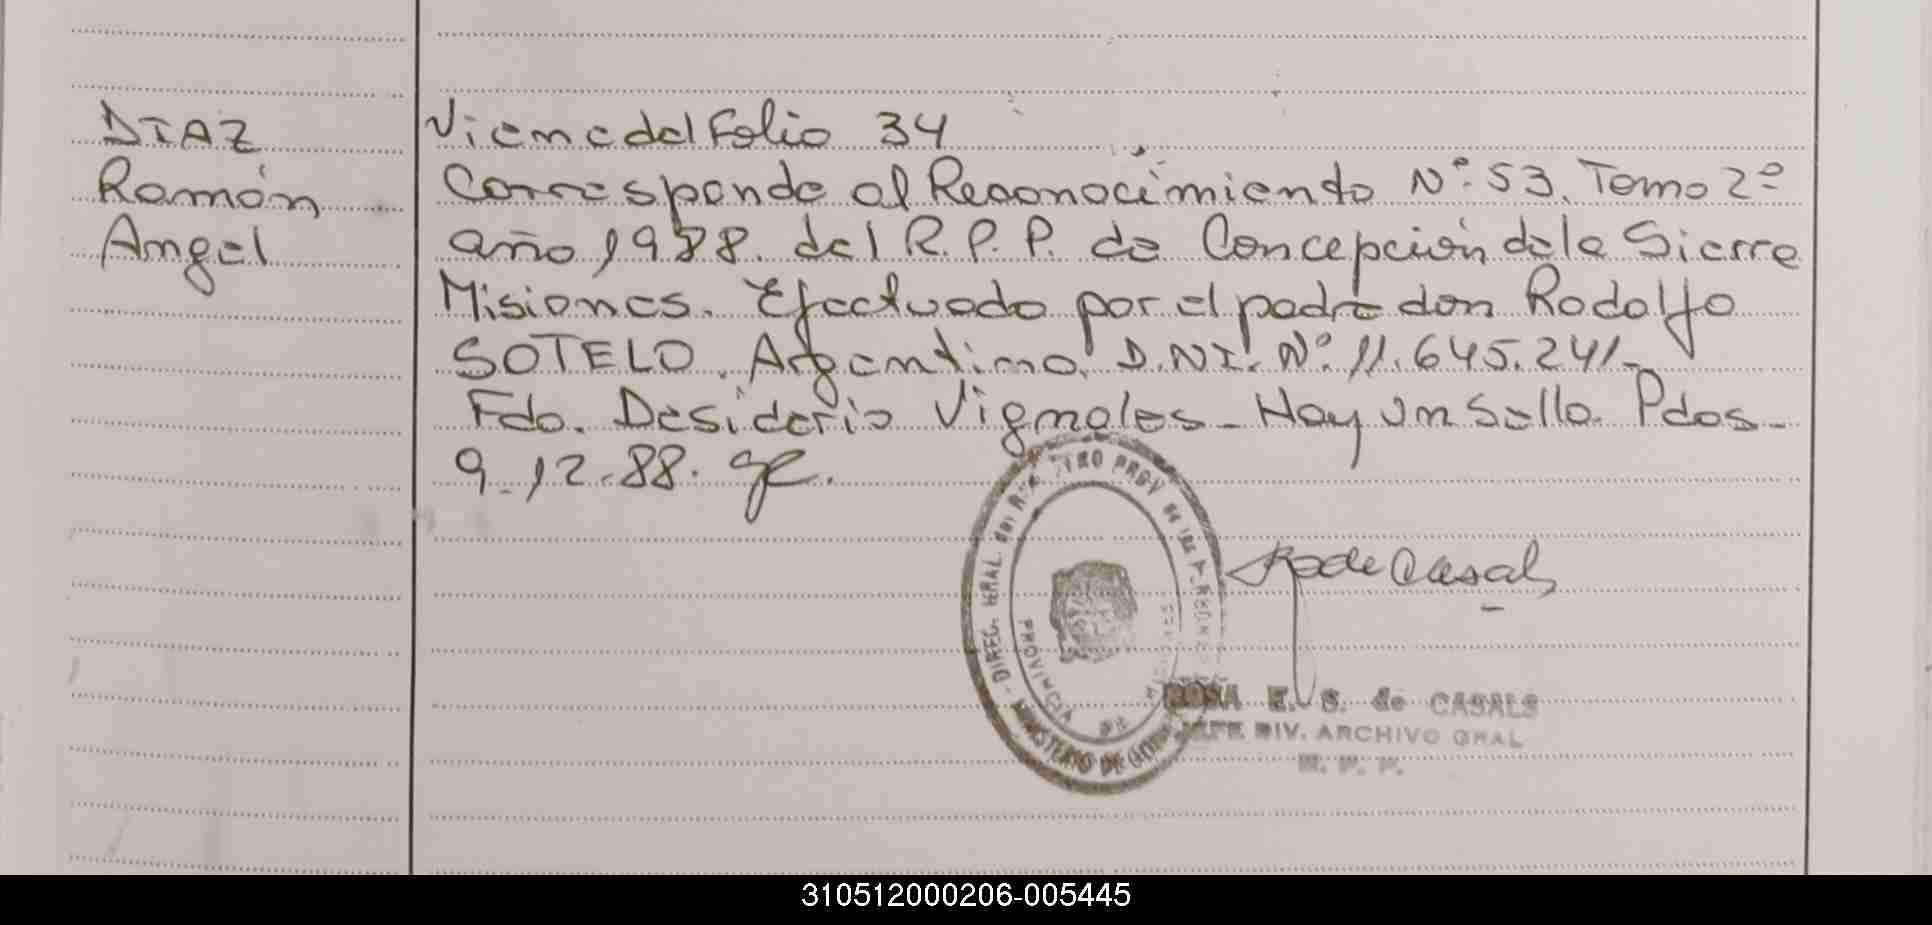 DIAZ
Ramón
Angel
Viene del Folio 34
Corresponde al Reconocimiento Nº 53. Tomo 2º
año 1988. del R. P. P. de Concepción de la Sierra
Misiones. Efectuado por el padre don Rodolfo
SOTELO. Argentino. D.N.I. Nº. 11.645.241-
Fdo. Desiderio Vignoles - Hay un Sello. Pdos-
9-12-88.
DIREC. GRAL. DEL REGISTRO PROV DE LAS PERSONAS
MINISTERIO DE GOB
PROVINCIA DE
R de Casals
ROSA E. S. de CASALS
JEFE DIV. ARCHIVO GRAL
R. P. P.
310512000206-005445